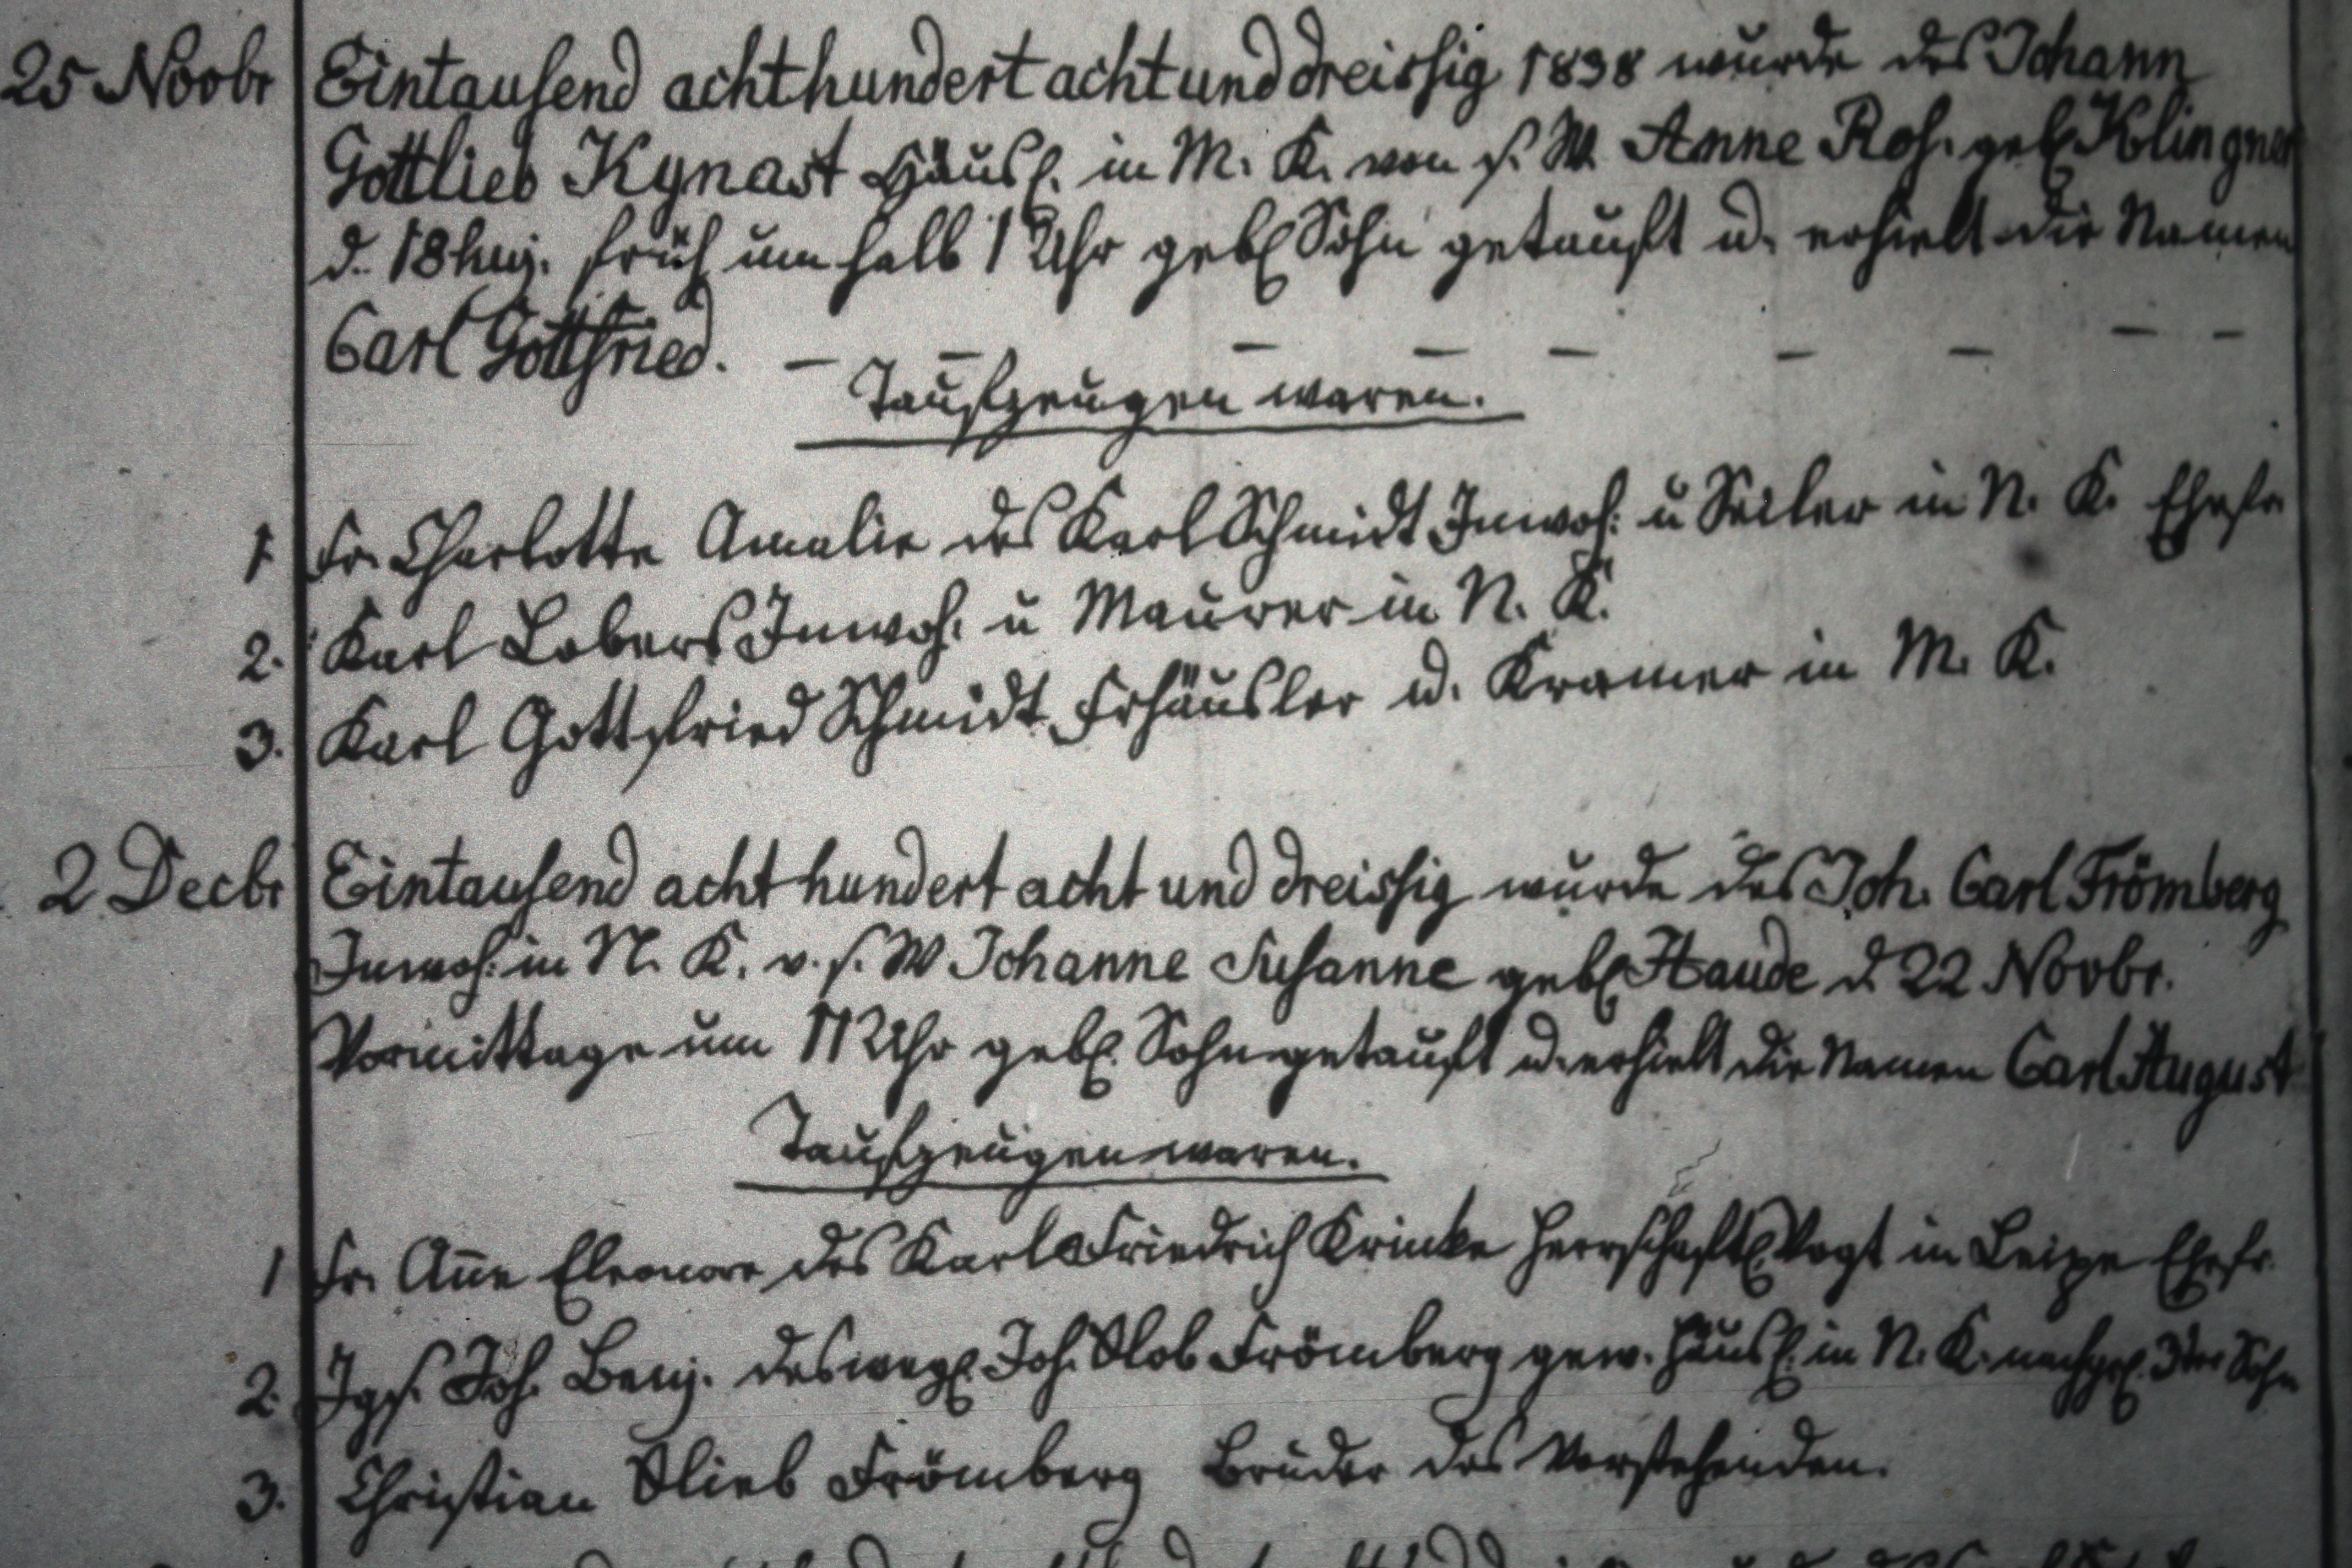 25 Novbr Eintausend achthundert acht und dreissig 1838 wurde des Johann
Gottlieb Kynast Häusl. in M. K. von s. W. Anne Ros. geb. Klingner
d. 18 huj. früh um halb 1 Uhr geb. Sohn getauft u. erhielt die Namen
Carl Gottfried. – – – – – – – – –
Taufzeugen waren.
1. Fr. Charlotte Amalie des Karl Schmidt Inwoh. u Seiler in N. K. Ehefr.
2. Karl Lobers Inwoh. u Maurer in N. K.
3. Karl Gottfried Schmidt Frhäusler u. Kramer in M. K.
2 Decbr Eintausend acht hundert acht und dreissig wurde des Joh. Carl Frömberg
Inwoh. in N. K. v. s. W Johanne Susanne geb. Haude d 22 Novbr.
Vormittage um 11 Uhr geb. Sohn getauft u. erhielt die Namen Carl August
Taufzeugen waren.
1 Fr. An̄e Eleonore des Karl Friedrich Krinke Herrschaftl. Vogt in Leipe Ehefr.
2. Jgs. Joh. Benj. des Joh. Glob Frömberg gew. Häusl. in N. K. nachgel. 3ter Sohn
3. Christian Glieb Frömberg Bruder des Vorstehenden.